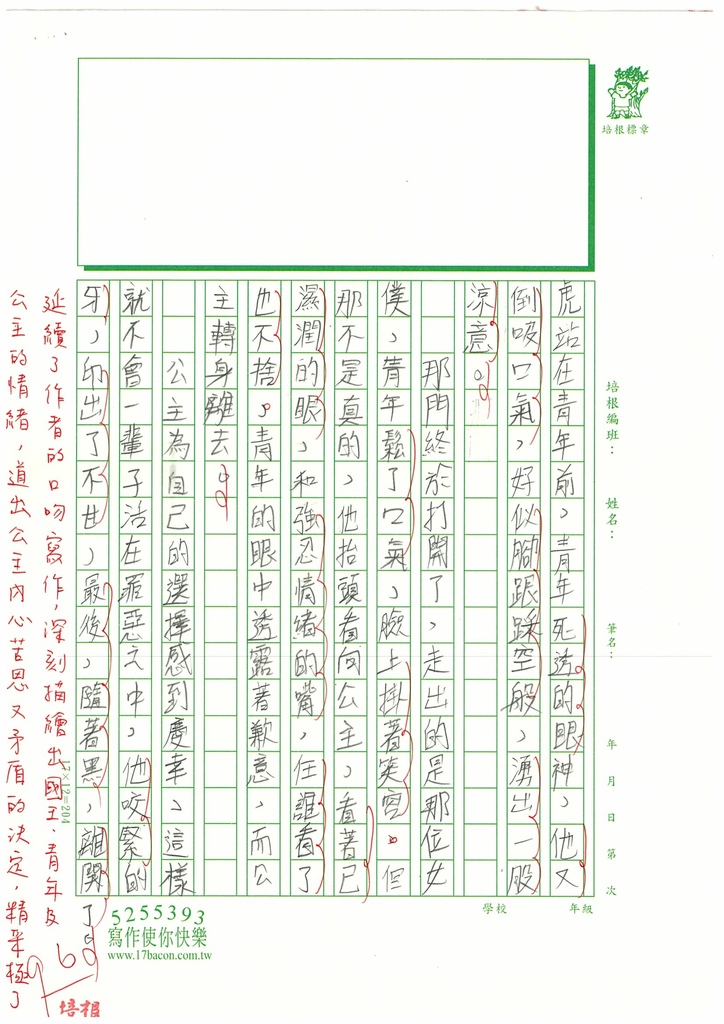 培根標章
培根編班：
姓名：
筆名：
年 月 日 第 次
學校
年級
虎站在青年前，青年死透的眼神，他又
倒吸口氣，好似腳踩踩空般，湧出一股
涼意。
那門終於打開了，走出的是那位女
僕，青年鬆了口氣，臉上掛著笑容。但
那不是真的，他抬頭看向公主，看著已
濕潤的眼，和強忍情緒的嘴，任誰看了
也不捨。青年的眼中透露著歉意，而公
主轉身離去。
公主為自己的選擇感到慶幸，這樣
就不會一輩子活在罪惡之中，他咬緊的
牙，印出了不甘，最後，隨著黑，離開了。
延續了作者的口吻寫作，深刻描繪出國王、青年及
公主的情緒，道出公主內心苦思又矛盾的決定，精采極了
17×12=204
5255393
寫作使你快樂
www.17bacon.com.tw
96
培根